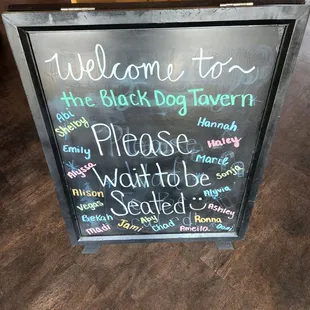 Welcome to~
the Black Dog Tavern
Abi
Shelby
Hannah
Please
Haley
Emily
Marcel
Alyssa
Wait to be
Sonja
Alison
Seated
Ashley
Vegas
Bekah
Aby
Ronna
Madi
Jami
Chad
Dani